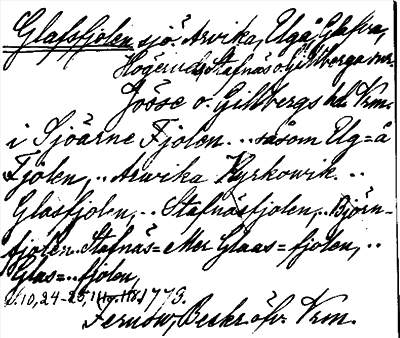 Glafsfjolen, sjö: Arvika, Älgå, Glafva,
Högerud, Stafnäs o. Gillberga snr.
Jösse o. Gillbergs hd Vrm.
i Sjöarne Fjolen... såsom Elg=å
Fjolen,... Arwika Kyrkowik...
Glasfjolen,... Stafnäsfjolen,... Björn-
fjolen. Stafnäs= eller Glaas=fjolen,..
Glas=..fjolen,
s. 10, 24-25, 118. 1773.
Fernow, Beskr. öfv. Vrm.